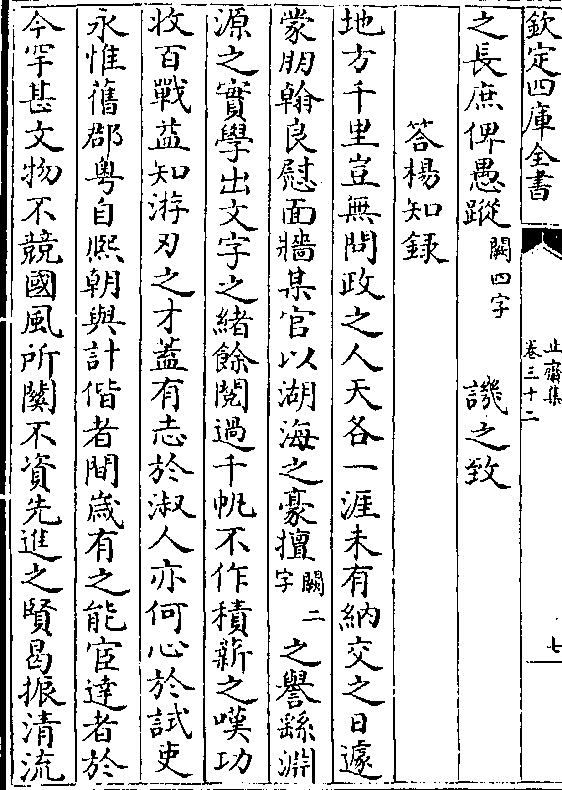 欽定四庫全書
止齋集
卷三十二
七
之長庶俾愚蹤闕四字譏之致
答楊知録
地方千里豈無問政之人天各一涯未有納交之日遽
蒙朋翰良慰面牆某官以湖海之豪擅闕二字之譽繇淵
源之實學出文字之緒餘閱過千帆不作積薪之嘆功
收百戰益知游刃之才蓋有志於淑人亦何心於試吏
永惟舊郡粤自熙朝與計偕者間歲有之能宦達者於
今罕甚文物不競國風所關不資先進之賢曷振清流